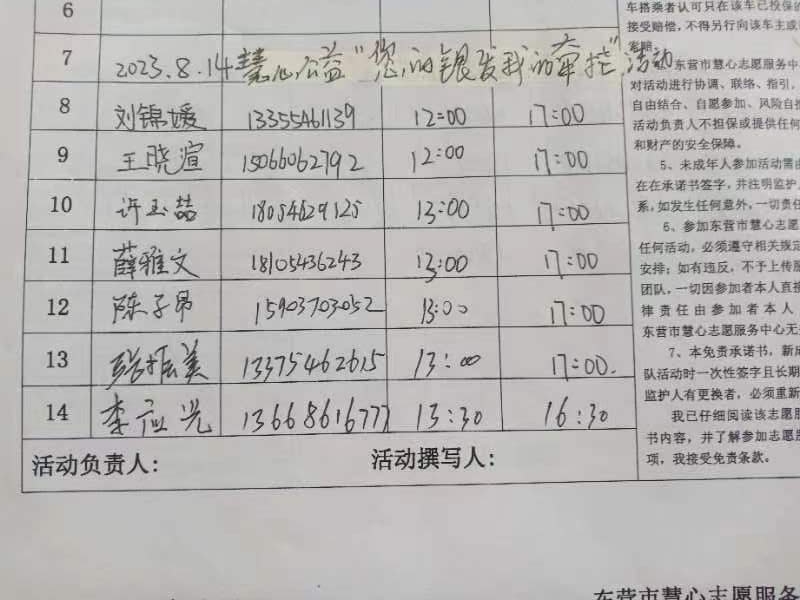 6
7 2023.8.14慧心公益"您的银发我的牵挂"活动
8 刘锦媛 13355461139 12:00 17:00
9 王晓渲 15066062792 12:00 17:00
10 许玉喆 18054629125 13:00 17:00
11 薛雅文 18105436243 13:00 17:00
12 陈子昂 15903703052 13:00 17:00
13 张振美 13375462615 13:00 17:00.
14 李应光 13668616777 13:30 16:30
活动负责人: 活动撰写人:
车搭乘者认可只在该车已投保的
接受赔偿,不得另行向该车主或
东营市慧心志愿服务中
对活动进行协调、联络、指引,
自由结合、自愿参加、风险自担
活动负责人不担保或提供任何
和财产的安全保障。
5、未成年人参加活动需由
在在承诺书签字,并注明监护
系,如发生任何意外,一切责任
6、参加东营市慧心志愿
任何活动,必须遵守相关规定
安排;如有违反,不予上传服
团队,一切因参加者本人直接
律责任由参加者本人
东营市慧心志愿服务中心无
7、本免责承诺书,新成
队活动时一次性签字且长期
监护人有更换者,必须重新
我已仔细阅读该志愿服
书内容,并了解参加志愿服
项,我接受免责条款。
东营市慧心志愿服务